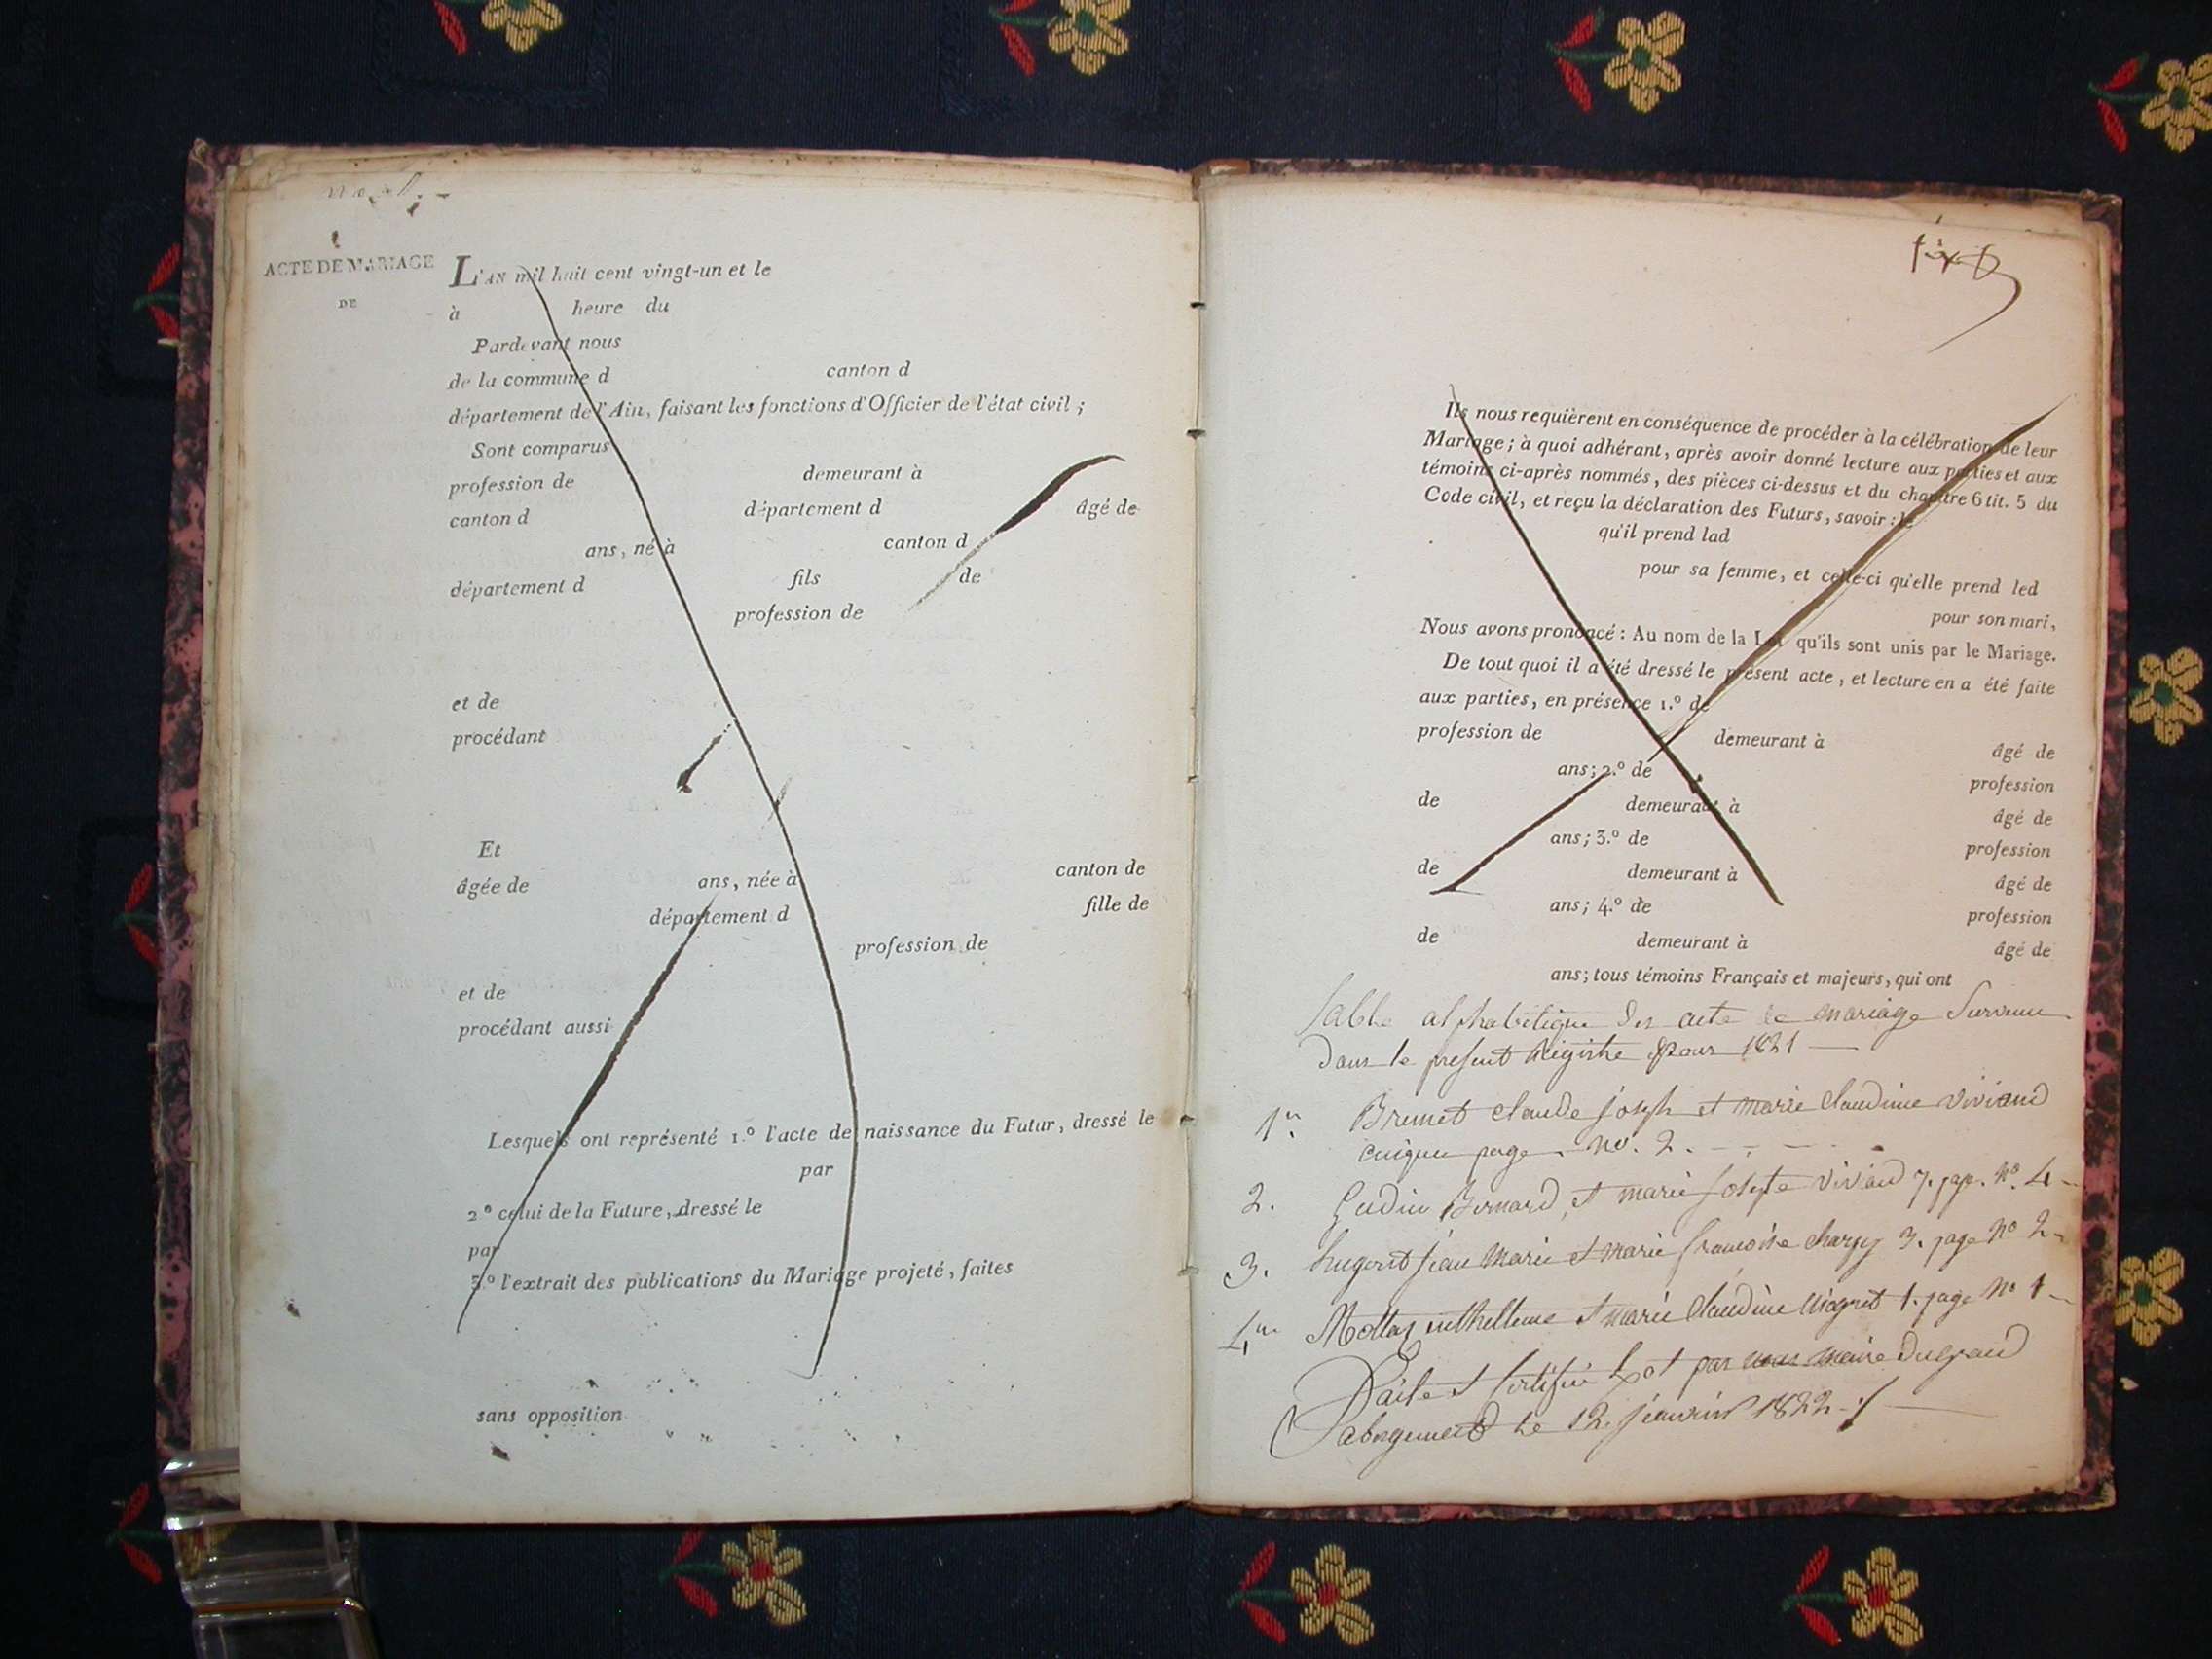 ACTE DE MARIAGE
DE
L'AN mil huit cent vingt-un et le
à heure du
Pardevant nous
de la commune d canton d
département de l'Ain, faisant les fonctions d'Officier de l'état civil ;
Sont comparus
profession de demeurant à
canton d département d âgé de
ans, né à canton d
département d fils de
profession de
et de
procédant
Et
âgée de ans, née à canton de
département d fille de
profession de
et de
procédant aussi
Lesquels ont représenté 1.º l'acte de naissance du Futur, dressé le
par
2º celui de la Future, dressé le
par
3.º l'extrait des publications du Mariage projeté, faites
sans opposition
Ils nous requièrent en conséquence de procéder à la célébration de leur
Mariage ; à quoi adhérant, après avoir donné lecture aux parties et aux
témoins ci-après nommés, des pièces ci-dessus et du chapitre 6 tit. 5 du
Code civil, et reçu la déclaration des Futurs, savoir : le
qu'il prend lad
pour sa femme, et celle-ci qu'elle prend led
pour son mari,
Nous avons prononcé : Au nom de la Loi qu'ils sont unis par le Mariage.
De tout quoi il a été dressé le présent acte, et lecture en a été faite
aux parties, en présence 1.º de
profession de demeurant à âgé de
ans ; 2.º de profession
de demeurant à âgé de
ans ; 3.º de profession
de demeurant à âgé de
ans ; 4.º de profession
de demeurant à âgé de
ans ; tous témoins Français et majeurs, qui ont
table alphabetique des acte de mariage
dans le present Registre pour 1821
1. Brunet claude joseph et marie claudine viviand
page no. 2.
2. Bernard et marie josepte viviand 7. page. no. 4
3. hugont jean marie et marie francoise 3. page no 2
4. Mottaz et marie claudine 1. page no 1
par nous maire du grand
abergement le 12. janvier 1822